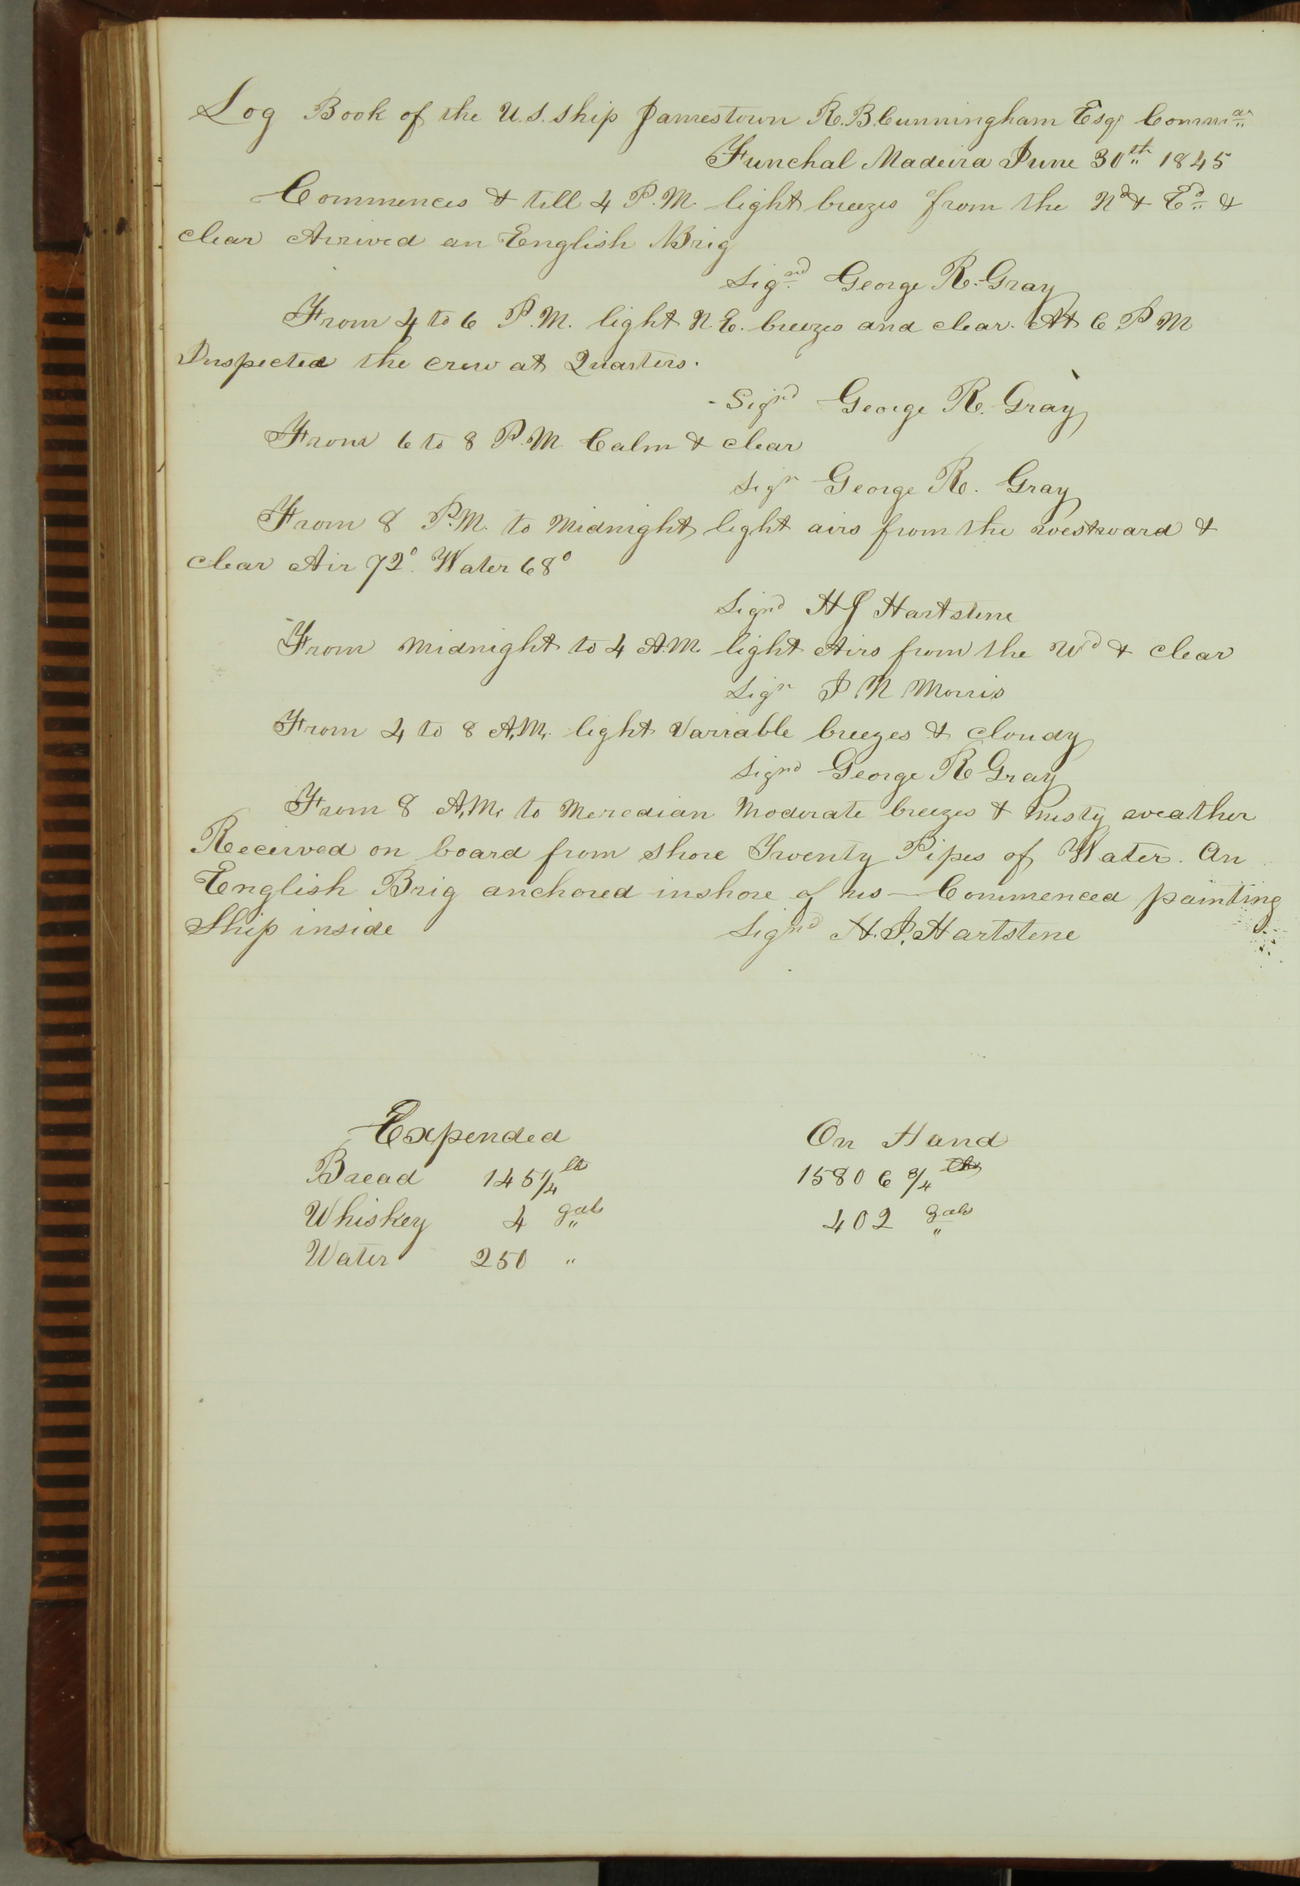 Log Book of the U.S. Ship Jamestown R.B. Cunningham Esqr Comman
Funchal Madeira June 30th 1845
Commences & till 4 P.M. light breezes from the Nd & Ed &
clear Arrived an English Brig
Signd George R. Gray
From 4 to 6 P.M. light N.E. breezes and clear. At 6 P M
Inspected the crew at Quarters.
Signd George R. Gray
From 6 to 8 P.M. Calm & clear
Sign George R. Gray
From 8 P.M. to Midnight light airs from the westward &
clear Air 72° Water 68°
Signd H J Hartstene
From Midnight to 4 A.M. light Airs from the Wd & clear
Sign J N Morris
From 4 to 8 A.M. light Variable breezes & cloudy
Signd George R Gray
From 8 A.M. to Meredian Moderate breezes & misty weather
Received on board from shore Twenty Pipes of Water. An
English Brig anchored inshore of us – Commenced painting
Ship inside Signd H.J. Hartstene
Expended On Hand
Bread 145 1/4 lb 15806 3/4 lbs
Whiskey 4 gals 402 gals
Water 250 "